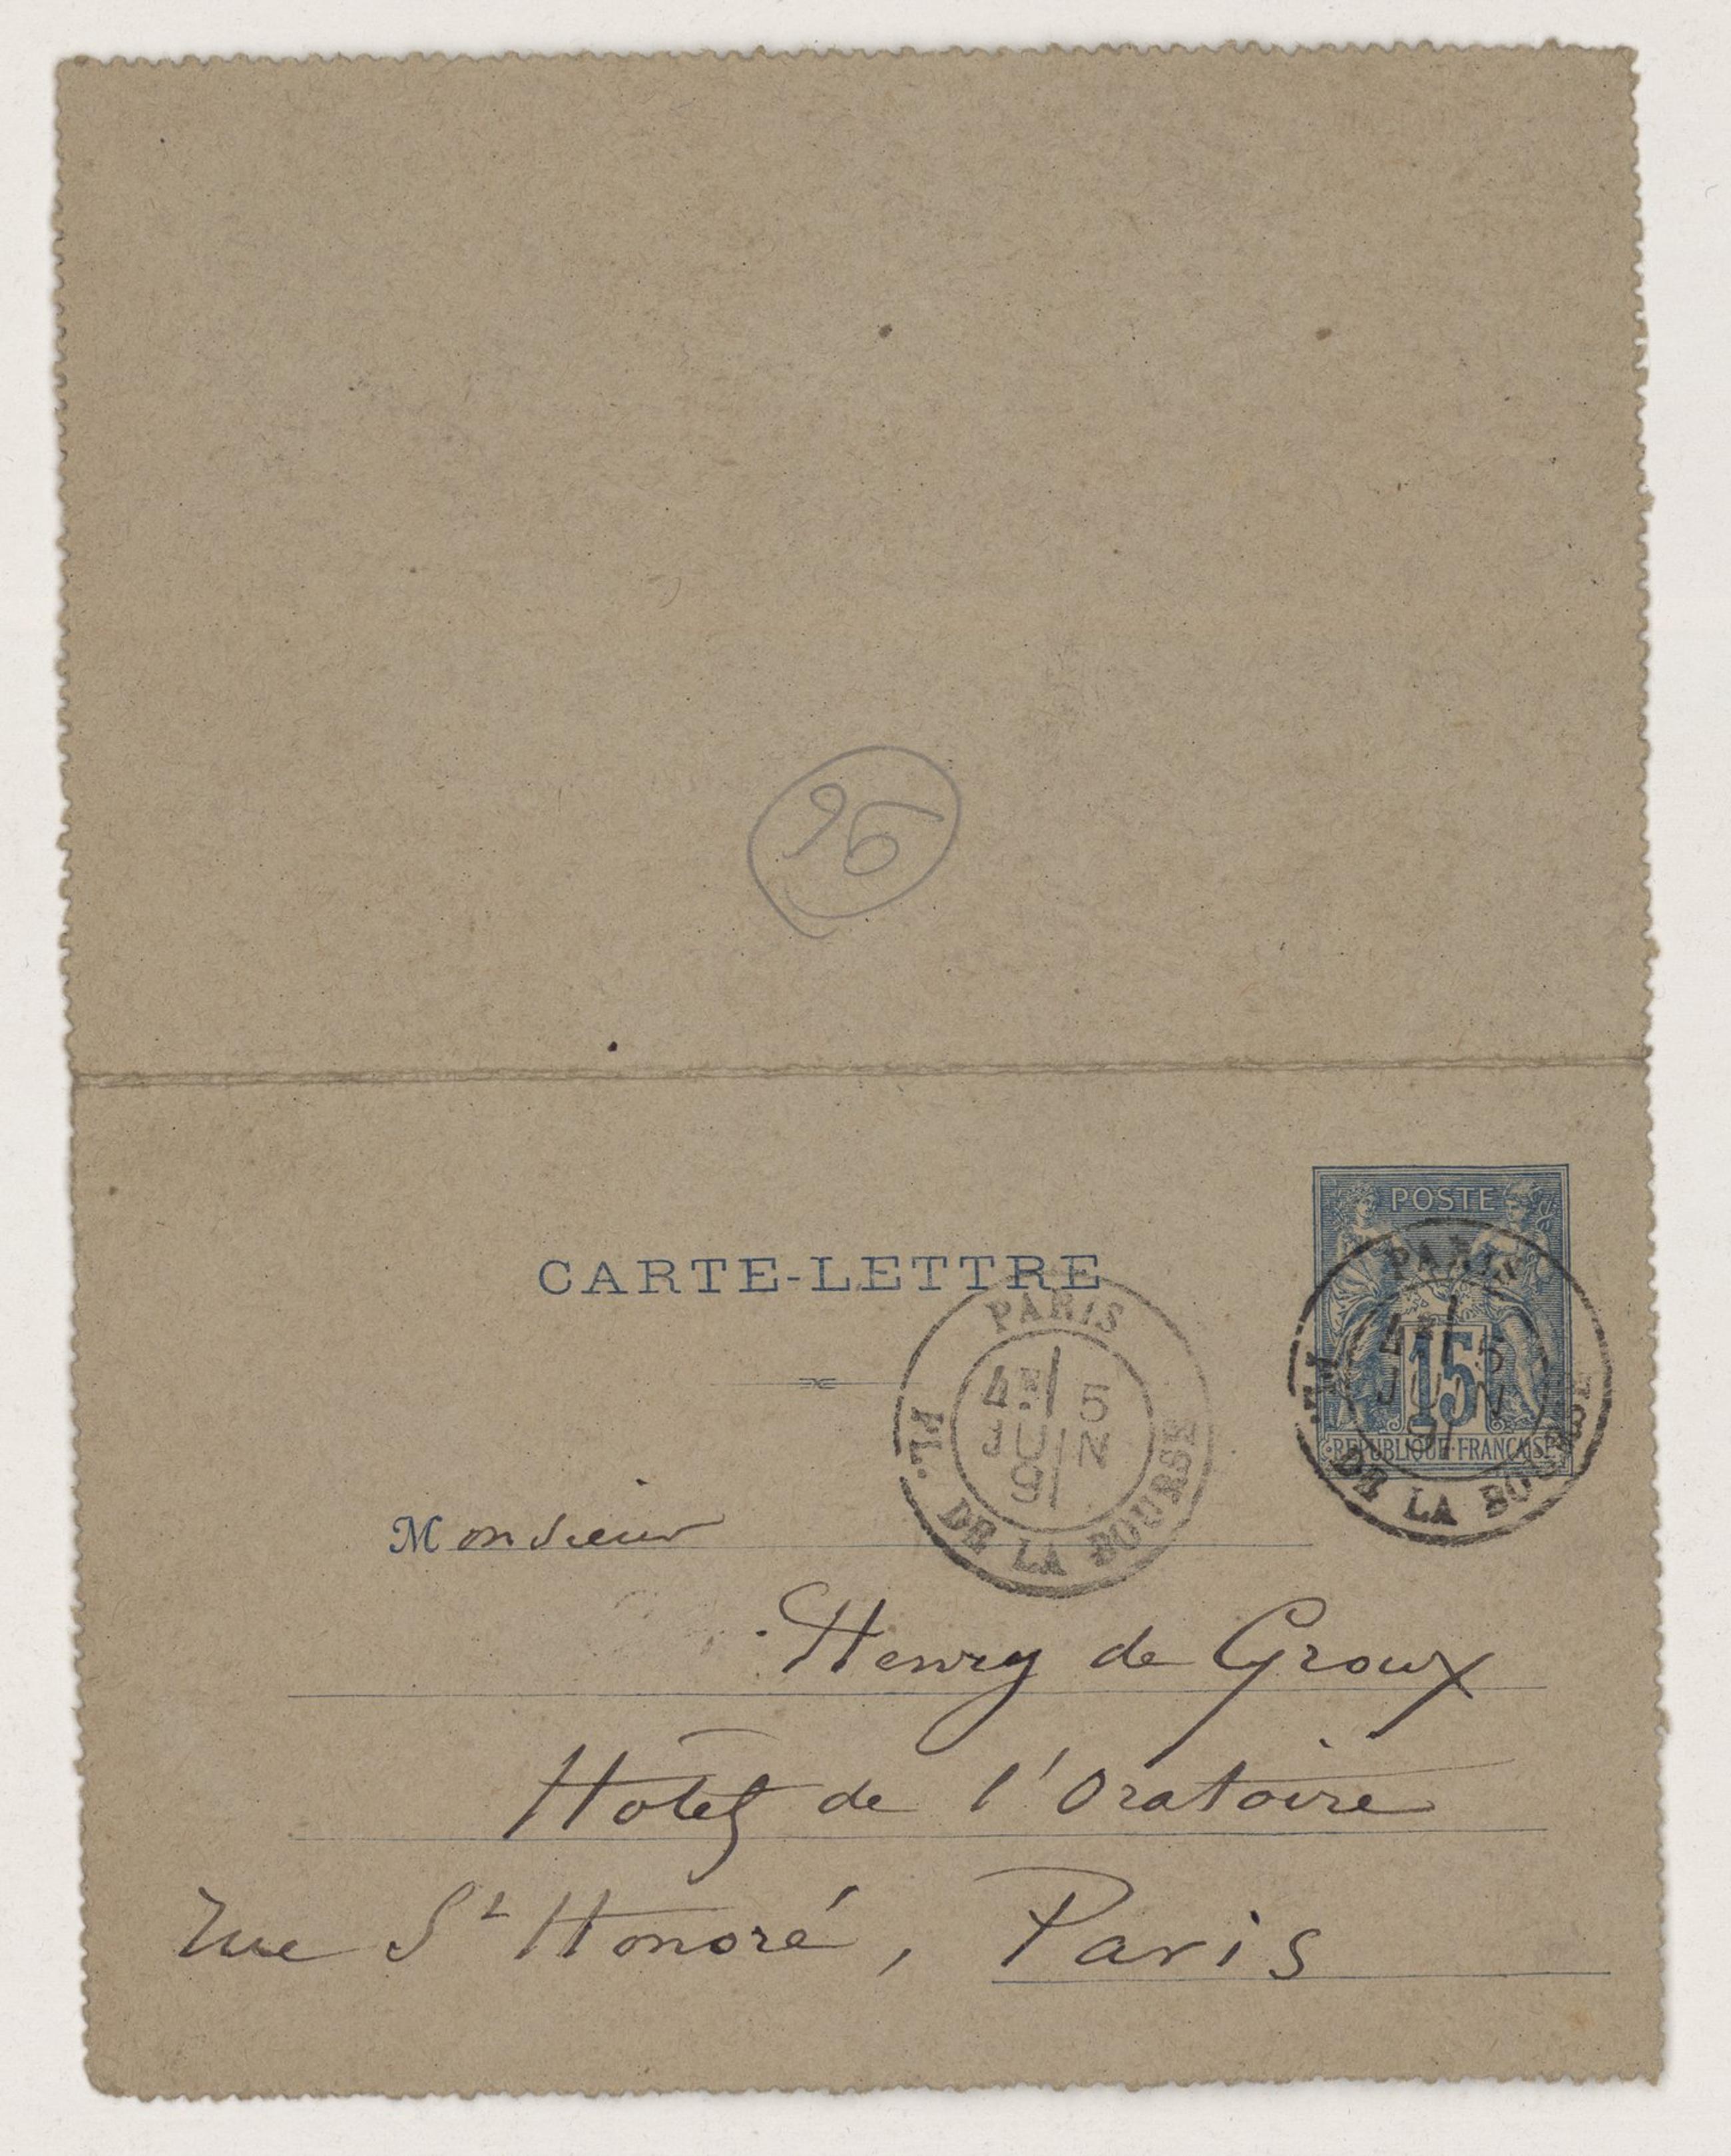 96
POSTE
15
REPUBLIQUE FRANÇAISE
CARTE-LETTRE
PARIS
4E 5
JUIN
91
PL. DE LA BOURSE
PARIS
4E 5
JUIN
91
PL. DE LA BOURSE
Monsieur
Henry de Groux
Hôtel de l'Oratoire
rue St Honoré, Paris